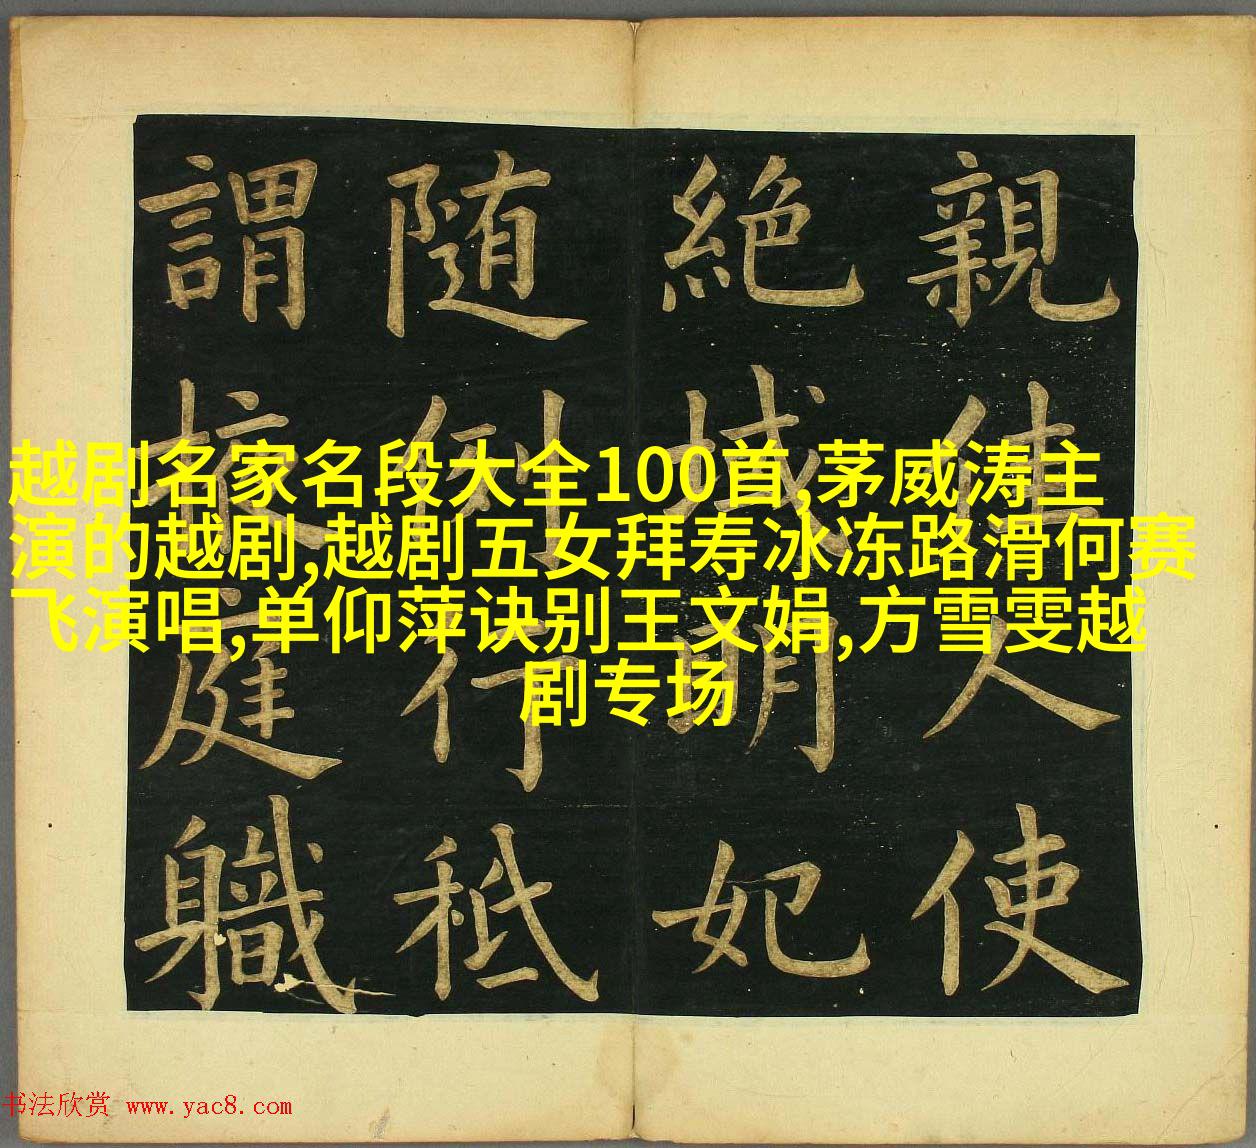 親佳人使
絶域明妃
随例行秖
謂掖庭職
越剧名家名段大全100首,茅威涛主
演的越剧,越剧五女拜寿冰冻路滑何赛
飞演唱,单仰萍诀别王文娟,方雪雯越
剧专场
书法欣赏 www.yac8.com